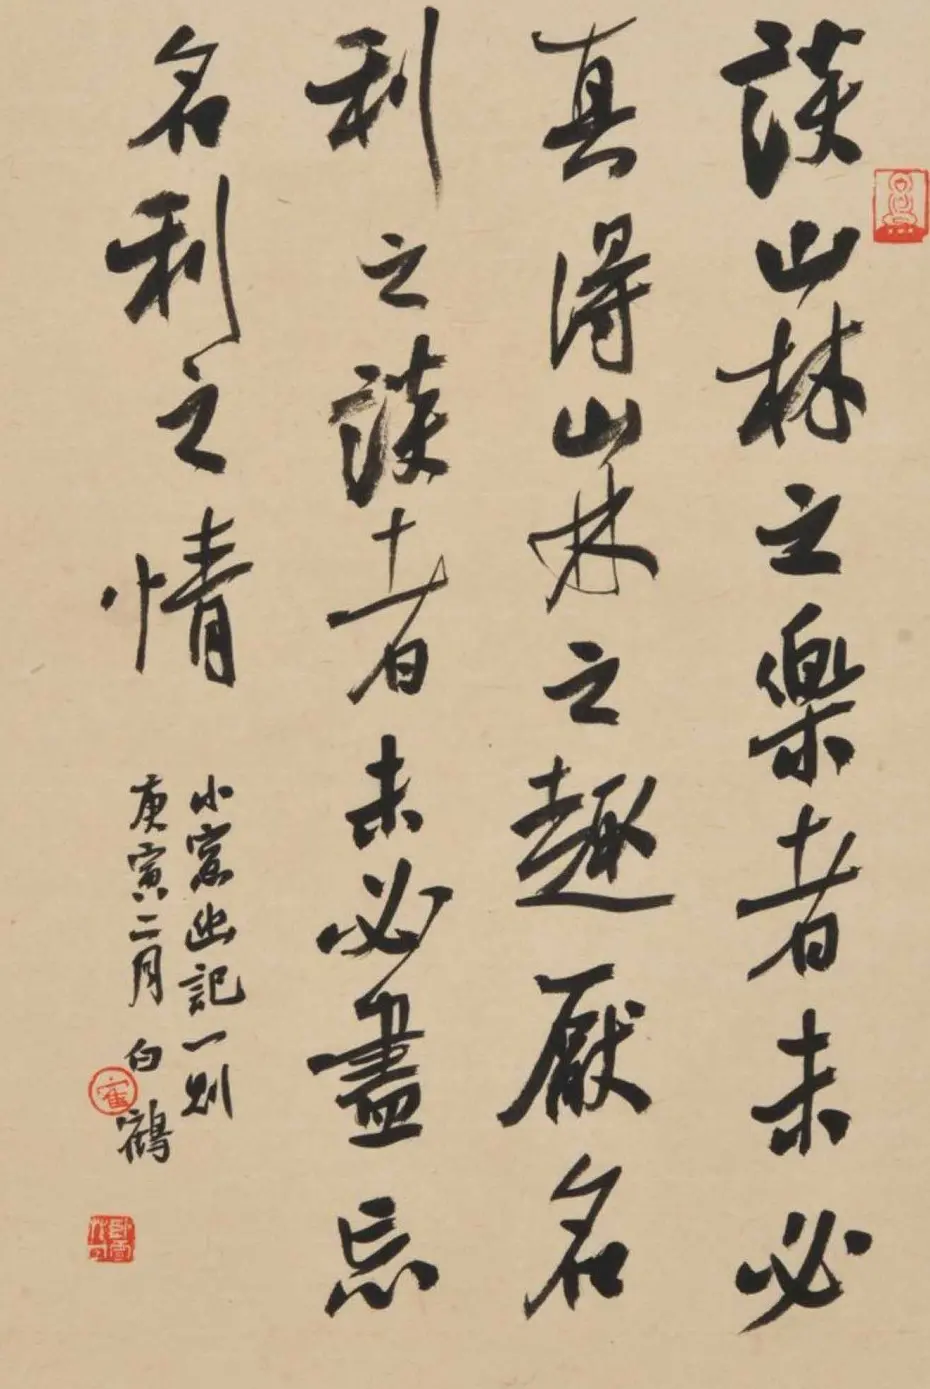 談山林之樂者未必
真得山林之趣厭名
利之談者未必盡忘
名利之情
小窓幽記一則
庚寅二月白鶴